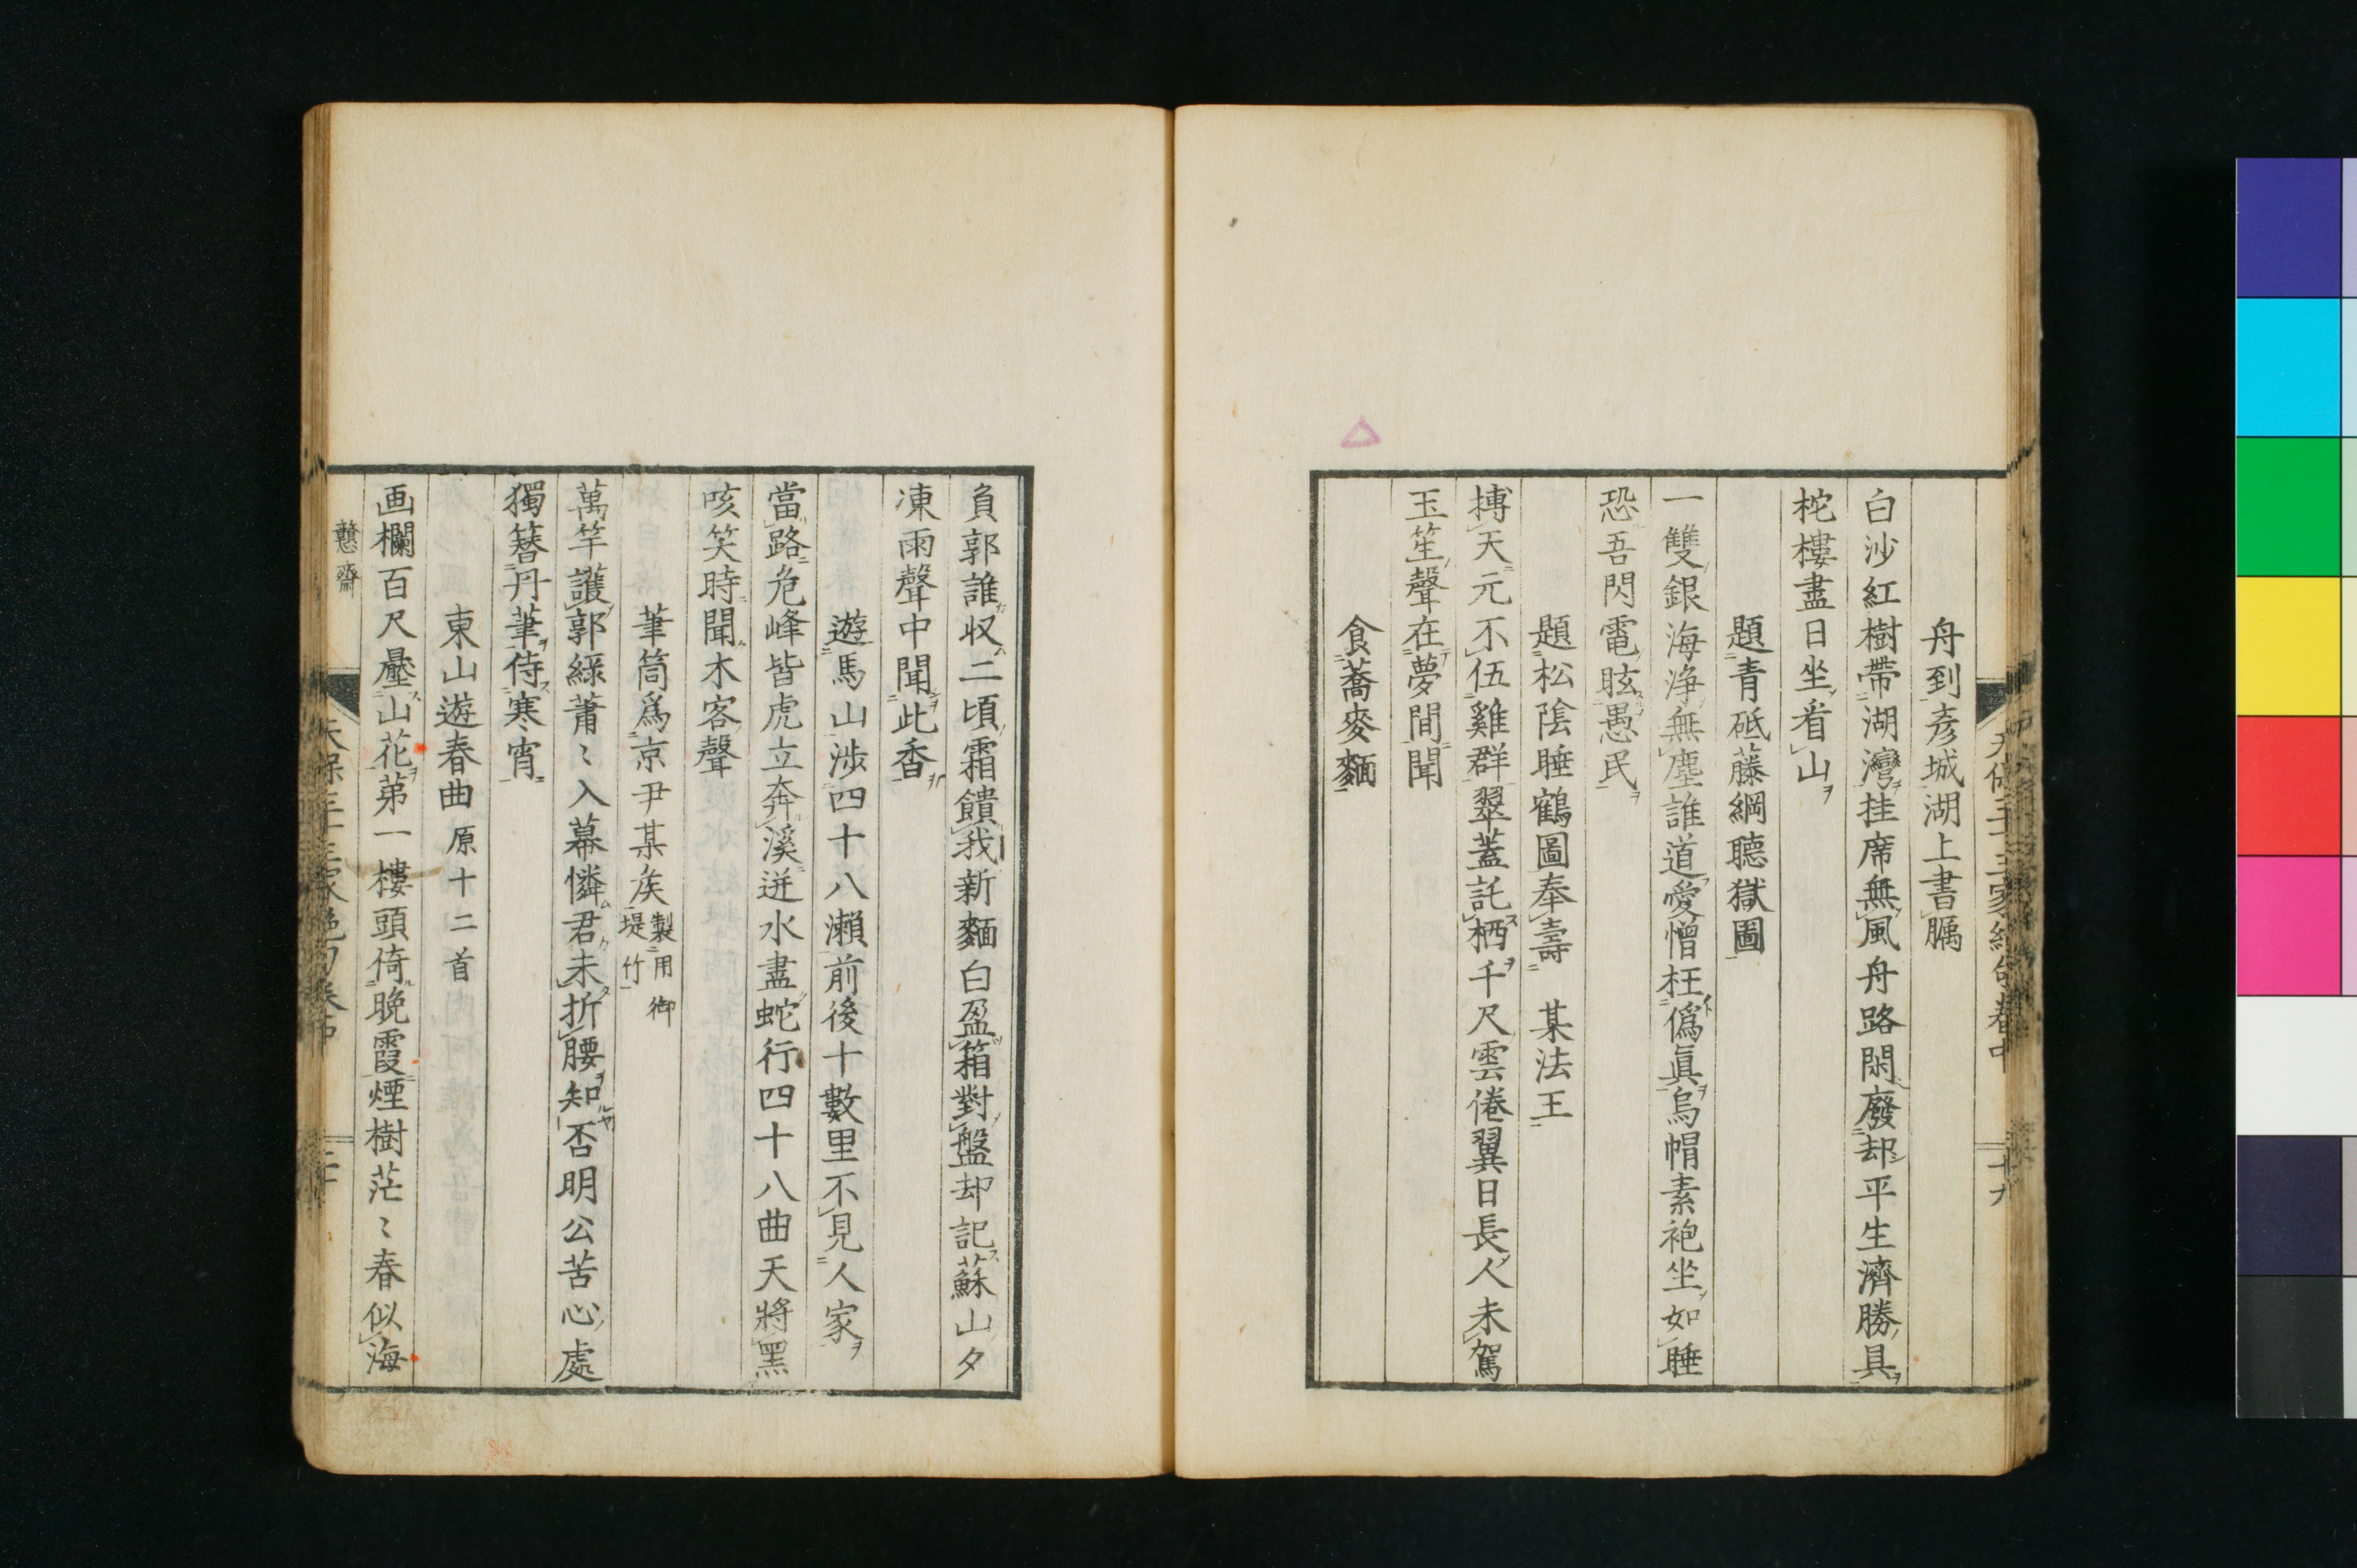 舟到彦城湖上書矚
白沙紅樹帶湖灣挂席無風舟路閑廢却平生濟勝具
柁樓盡日坐看山
題青砥藤綱聽獄圖
一雙銀海浄無塵誰道愛憎枉僞眞烏帽素袍坐如睡
恐吾閃電眩愚民
題松陰睡鶴圖奉壽　某法王
摶天元不伍雞群翠蓋託栖千尺雲倦翼日長人未駕
玉笙聲在夢間聞
食蕎麥麵
負郭誰収二頃霜饋我新麵白盈箱對盤却記蘇山夕
凍雨聲中聞此香
遊馬山渉四十八瀬前後十數里不見人家
當路危峰皆虎立奔溪迸水盡蛇行四十八曲天將黑
咳笑時聞木客聲
筆筒爲京尹某矦製用御堤竹
萬竿護郭綠蕭〻入幕憐君未折腰知否明公苦心處
獨簪丹筆侍寒宵
東山遊春曲原十二首
画欄百尺壓山花第一樓頭倚晩霞煙樹茫〻春似海